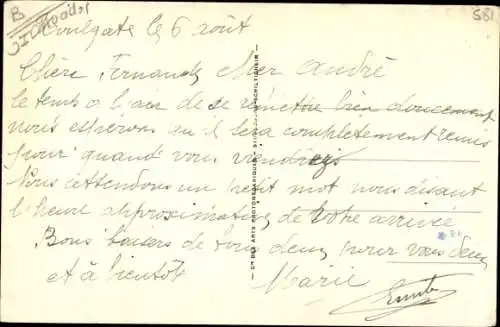 B
581
le 6 août
Chère Fernande, cher André
le temps a l'air de se remettre bien doucement
nous esperons qu'il sera complètement remis
pour quand vous viendrez
Nous attendons un petit mot nous disant
l'heure approximative de votre arrivée
Bons baisers de tous deux pour vous deux
et à bientôt
Marie